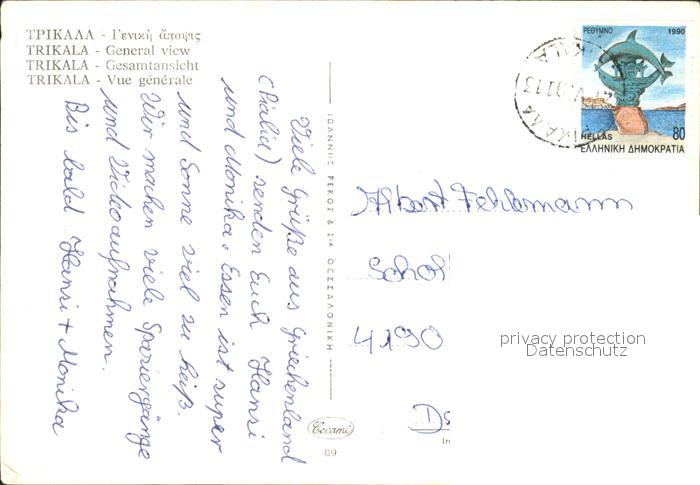 ΤΡΙΚΑΛΑ - Γενική ἄποψις
TRIKALA - General view
TRIKALA - Gesamtansicht
TRIKALA - Vue générale
Viele Grüße aus Griechenland
senden Euch Hansi
und Monika. Essen ist super
und Sonne viel zu heiß.
Wir machen viele Spaziergänge
und Videoaufnahmen.
Bis bald Hansi + Monika
ΙΩΑΝΝΗΣ ΡΕΚΟΣ & ΣΙΑ ΘΕΣΣΑΛΟΝΙΚΗ
Cecami
89
ΡΕΘΥΜΝΟ 1990
80
HELLAS
ΕΛΛΗΝΙΚΗ ΔΗΜΟΚΡΑΤΙΑ
Albert Fehlemann
Schol
4190
privacy protection
Datenschutz
In